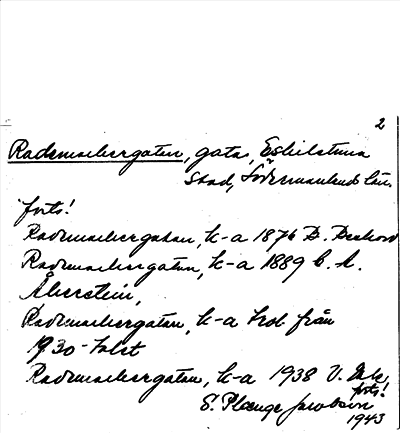 2
Rademachergatan, gata, Eskilstuna
stad, Södermanlands län.
forts!
Rademachergatan, k-a 1876 D.
Rademachergatan, k-a 1889 C. A.
Åkerstein,
Rademachergatan, k-a trol. från
1930-talet
Rademachergatan, k-a 1938 V.
forts!
S. Plænge Jacobson
1943